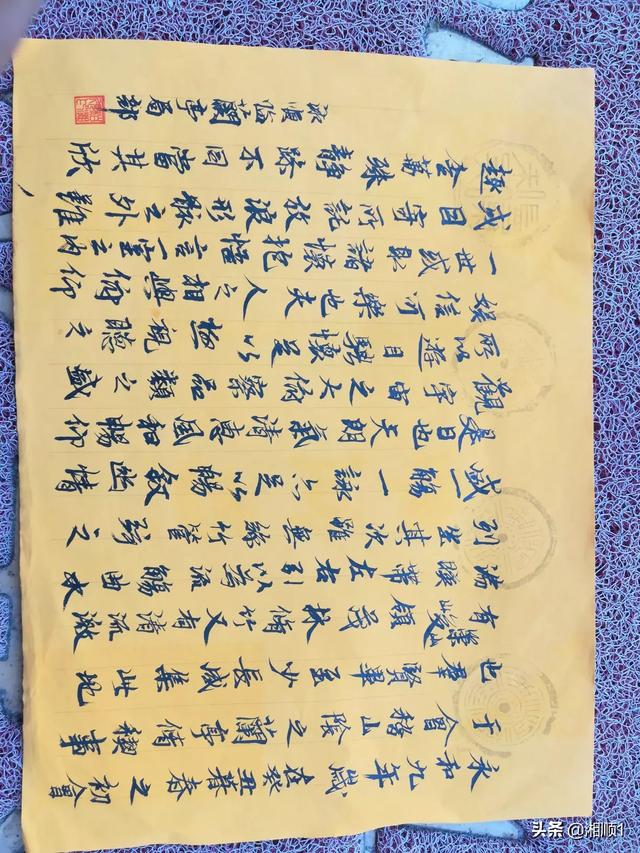 永和九年歲在癸丑暮春之初會
于會稽山陰之蘭亭脩稧事
也羣賢畢至少長咸集此地
有崇山峻領茂林脩竹又有清流激
湍暎帶左右引以為流觴曲水
列坐其次雖無絲竹管弦之
盛一觴一詠亦足以暢敘幽情
是日也天朗氣清惠風和暢仰
觀宇宙之大俯察品類之盛
所以遊目騁懷足以極視聽之
娛信可樂也夫人之相與俯仰
一世或取諸懷抱悟言一室之內
或因寄所託放浪形骸之外雖
趣舍萬殊靜躁不同當其欣
永順臨蘭亭局部
头条 @湘顺1